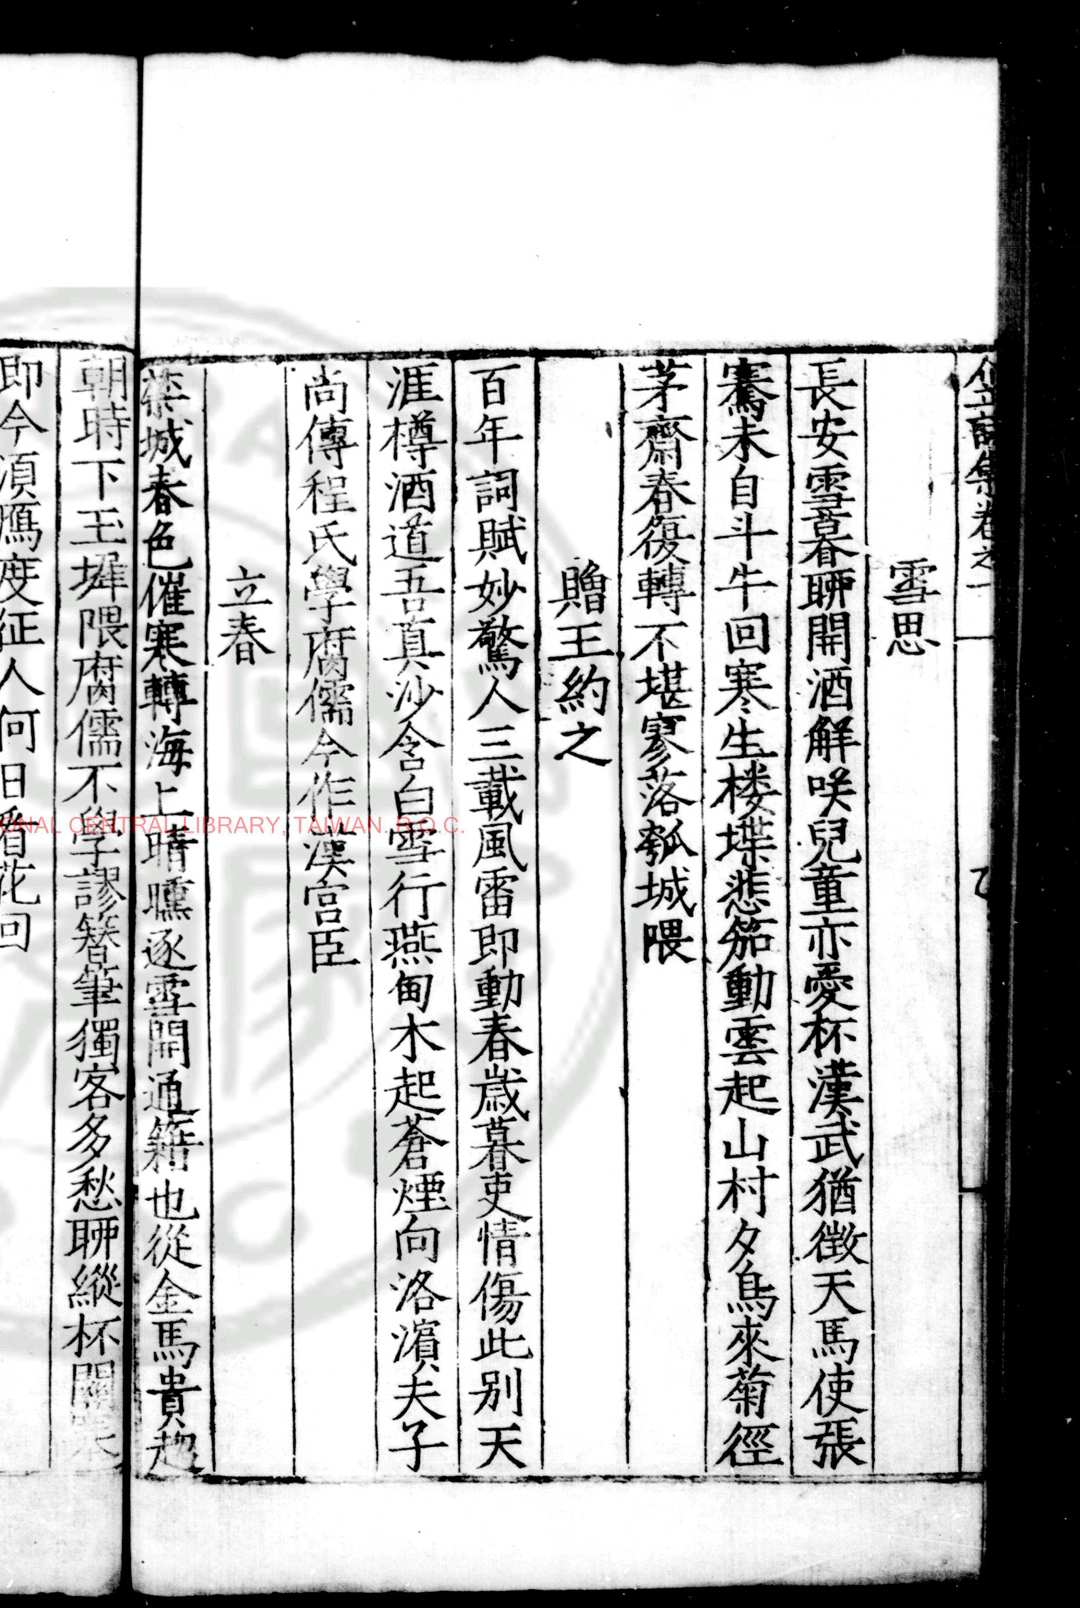 雪思
長安雪暮聊開酒解咲兒童亦愛杯漢武猶徴天馬使張
騫未自斗牛回寒生楼堞悲笳動雲起山村夕鳥來菊徑
茅齋春復轉不堪寥落瓠城隈
贈王約之
百年詞賦妙驚人三載風雷即動春歳暮吏情傷此別天
涯樽酒道吾真沙含白雪行燕甸木起蒼煙向洛濵夫子
尚傳程氏學腐儒今作漢宮臣
立春
禁城春色催寒轉海上晴曛逐雪開通籍也從金馬貴趂
朝時下玉墀隈腐儒不學謬簪筆獨客多愁聊縱杯關
即今湏鴈度征人何日看花回
NATIONAL CENTRAL LIBRARY, TAIWAN, R.O.C.